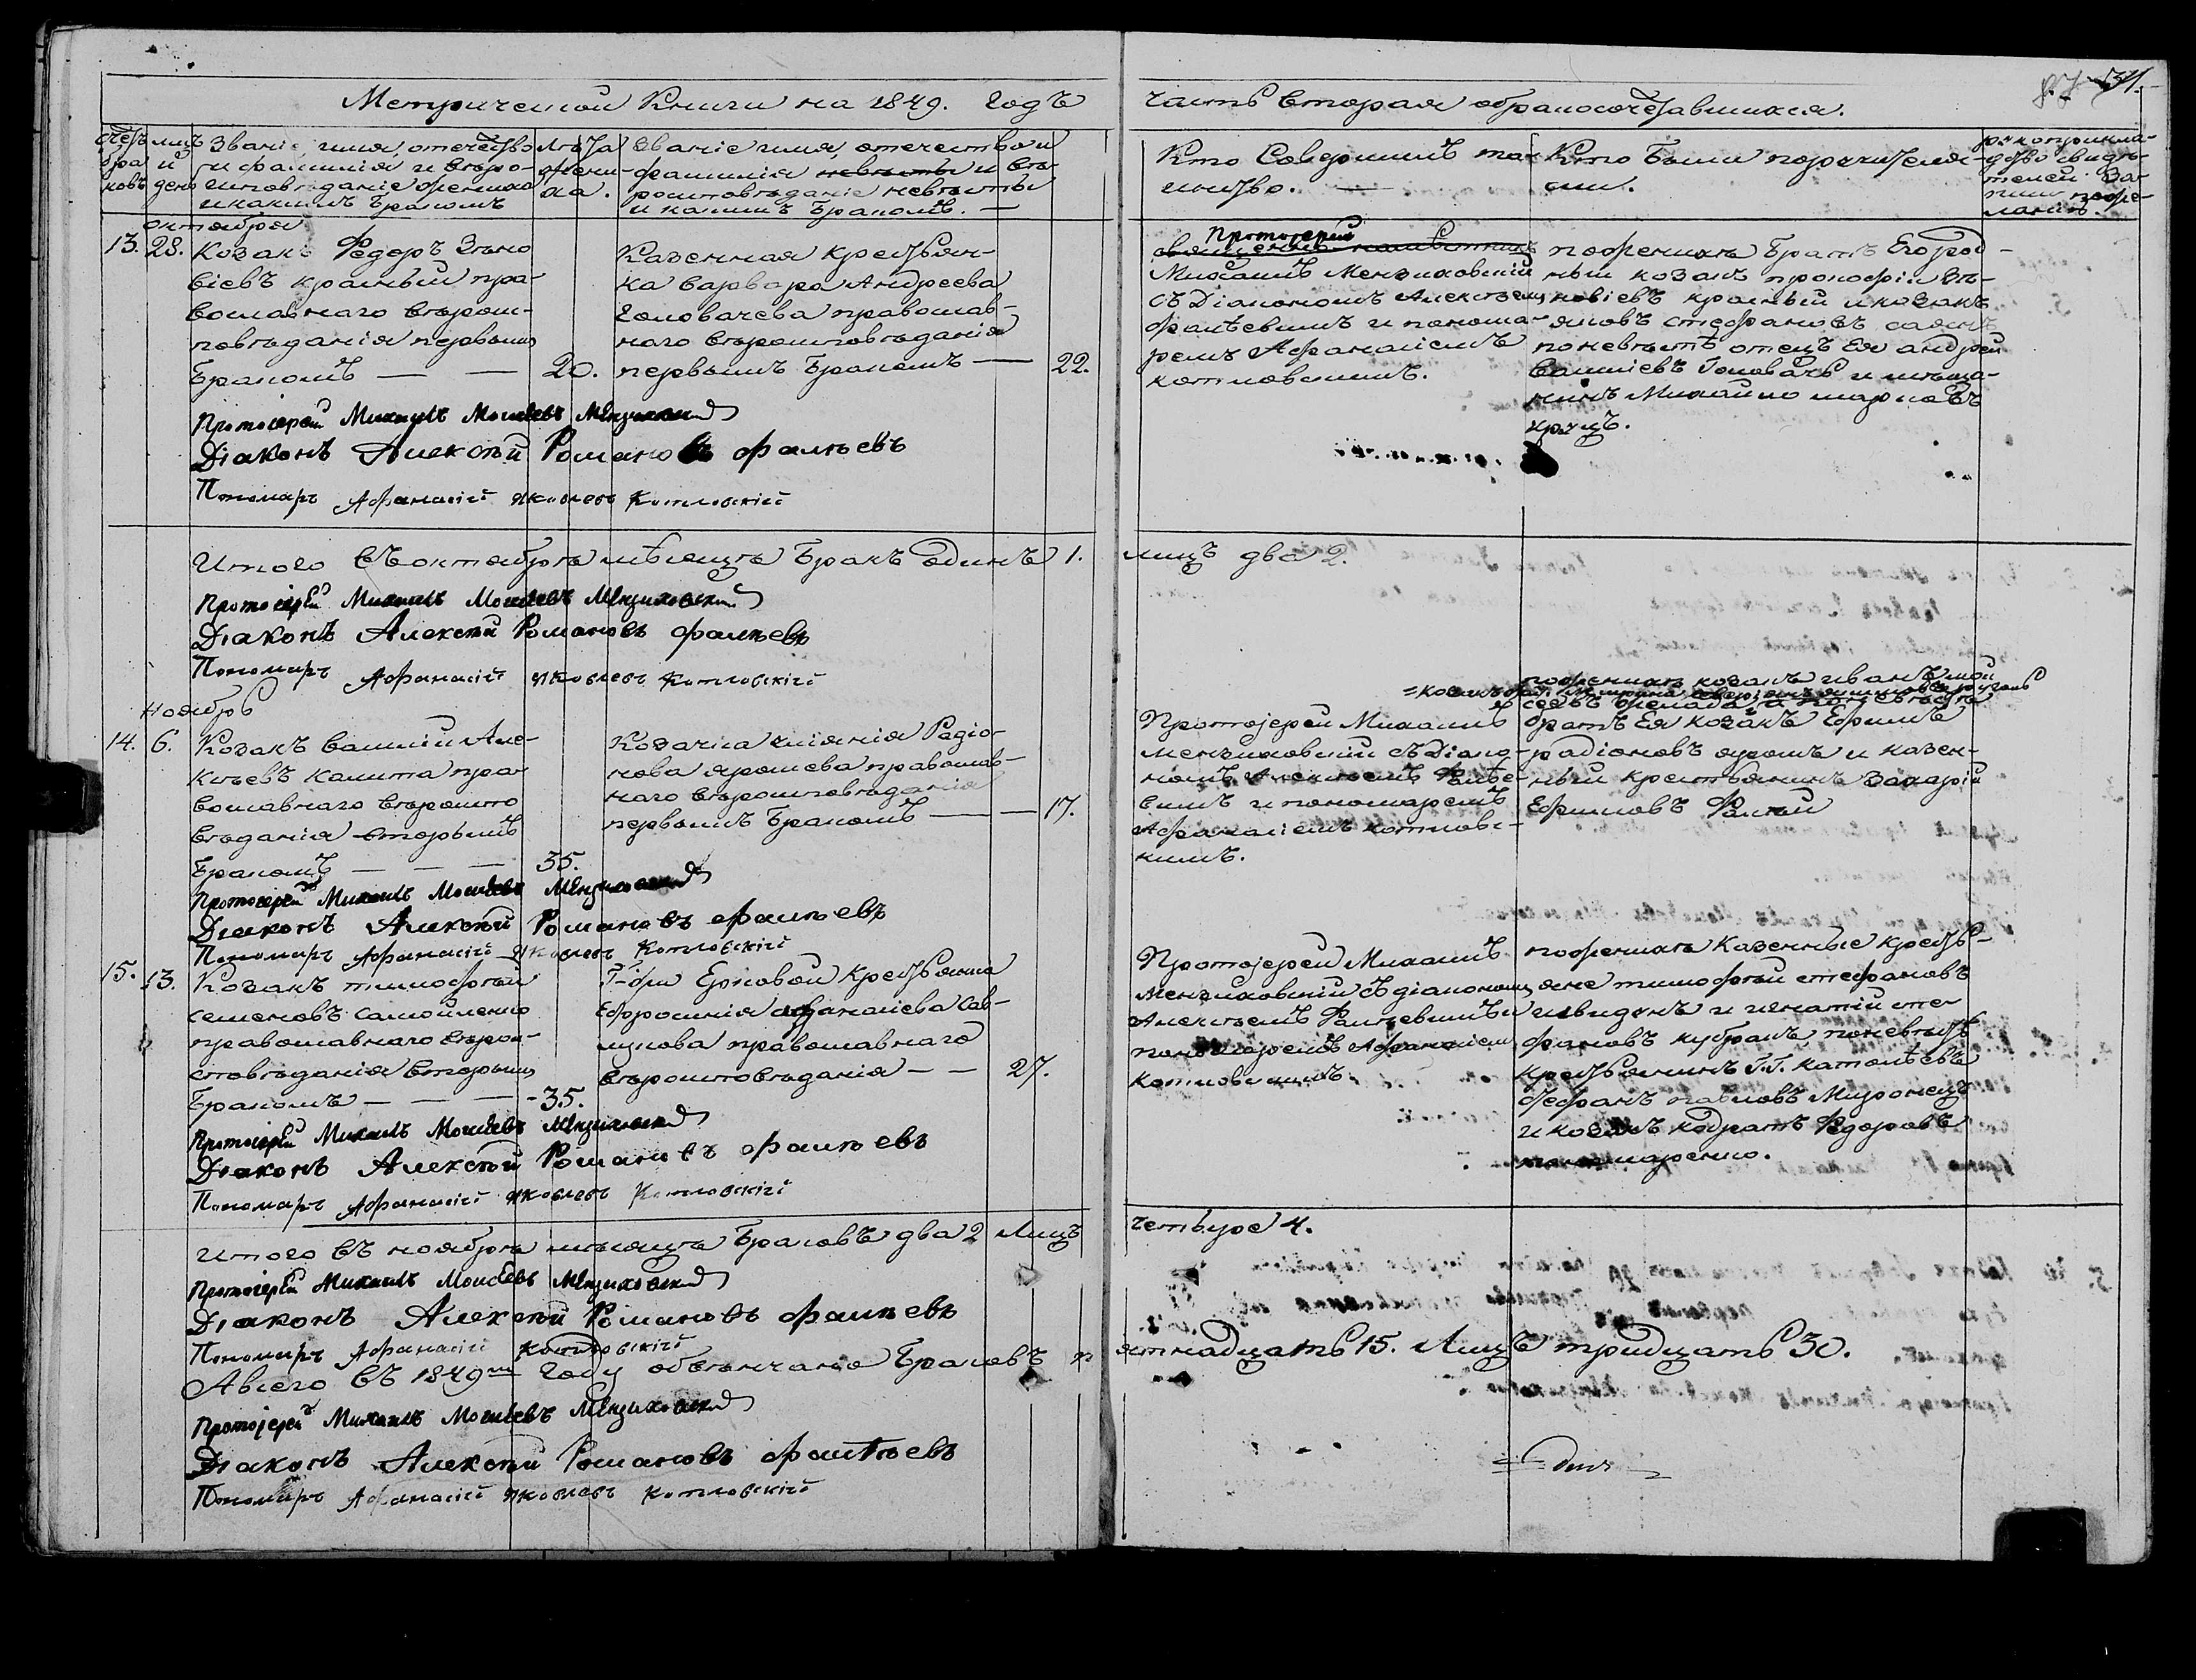 Метрической Книги на 1849. Годъ
часть вторая обракосочетавшихся.
87
Счетъ бра ковъ
мцъ и день
Званіе имя, отечество
и фамилія и веро-
исповѣданіе жениха
и какимъ бракомъ
Лѣта
жени-
ха.
Званіе имя, отечество и
фамилія невѣсты и вѣ-
роисповѣданіе невѣсты
и какимъ бракомъ. —
Кто Совершилъ таи-
инство. —
Кто были поручители-
ями.
октября
13. 28. Козакъ Федоръ Зѣно
віевъ красный пра-
вославнаго вѣроис-
повѣданія первымъ
бракомъ — — 20.
Казенная крестьян-
ка варвара Андреева
Головачева православ-
наго вѣроисповѣданія
первымъ бракомъ — 22.
Протоіерей
Михаилъ Мензиховскій
съ Діакономъ Алексѣемъ
Фалѣевимъ и понома-
ремъ Афанасіемъ
котловскимъ.
поженихѣ братъ Его род-
ный козакъ прокофій Зѣ-
новіевъ красный и козакъ
яковъ стефановъ
поневѣстѣ отецъ Ея андрей
василіевъ Головачъ и мѣща-
нинъ Михайло марковъ
Протоіерей Михаилъ Моисеевъ Мензиховскій
Діаконъ Алексѣй Романовъ фалѣевъ
Пономарь Афанасій Яковлевъ Котловскій
Итого въ октябрѣ мѣсяцѣ бракъ одинъ 1.
лицъ два 2.
Протоіерей Михаилъ Моисеевъ Мензиховскій
Діаконъ Алексѣй Романовъ фалѣевъ
Пономарь Афанасій Яковлевъ Котловскій
Ноябрь
14. 6. Козакъ василій Але-
кѣевъ калита пра-
вославнаго вѣроиспо
вѣданія вторымъ
бракомъ — — — 35.
Козачка
Радіо-
нова ярошева православ-
наго вѣроисповѣданія
первымъ бракомъ — — 17.
Протоіерей Михаилъ
Мензиховскій съ Діако-
номъ Алексѣемъ Фалѣе-
вимъ и пономаремъ
Афанасіемъ котловс-
кимъ.
поженихѣ козакъ иванъ
братъ Ея козакъ Ефимъ
радіоновъ ярошъ и казен-
ный крестьянинъ Захарій
Ефимовъ
Протоіерей Михаилъ Моисеевъ Мензиховскій
Діаконъ Алексѣй Романовъ фалѣевъ
Пономарь Афанасій Яковлевъ Котловскій
15. 13. Козакъ тимофѣй
семеновъ самойленко
православнаго вѣрои-
сповѣданія вторымъ
бракомъ — — — 35.
Г-жи
крестьянка
Ефросинія афанасіева Сав-
православнаго
вѣроисповѣданія — — 27.
Протоіерей Михаилъ
Мензиховскій съ діакономъ
Алексѣемъ Фалѣевимъ и
пономаремъ Афанасіемъ
котловскимъ
поженихѣ Казенные кресть-
яне тимофѣй стефановъ
и игнатій сте-
фановъ кубракъ, поневѣстѣ
крестьянинъ Г.Г.
павловъ Миронецъ
и козакъ кодратъ Федоровъ
Протоіерей Михаилъ Моисеевъ Мензиховскій
Діаконъ Алексѣй Романовъ фалѣевъ
Пономарь Афанасій Яковлевъ Котловскій
Итого въ ноябрѣ мѣсяцѣ браковъ два 2 Лицъ
четыре 4.
Протоіерей Михаилъ Моисеевъ Мензиховскій
Діаконъ Алексѣй Романовъ фалѣевъ
Пономарь Афанасій Котловскій
Авсего въ 1849мъ Году обвѣнчано браковъ п
ятнадцать 15. Лицъ тридцать 30.
Протоіерей Михаилъ Моисеевъ Мензиховскій
Діаконъ Алексѣй Романовъ фалѣевъ
Пономарь Афанасій Яковлевъ Котловскій